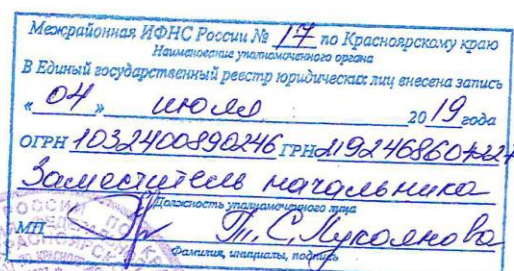 Межрайонная ИФНС России № 17 по Красноярскому краю
Наименование уполномоченного органа
В Единый государственный реестр юридических лиц внесена запись
« 04 » июля 2019 года
ОГРН 1032400890246 ГРН
Заместитель начальника
Должность уполномоченного лица
МП Т.С. Лукоянова
Фамилия, инициалы, подпись
РОССИИ ПО
КРАСНОЯРСКО